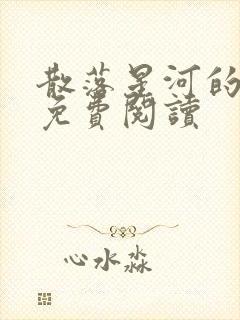 散落星河的
免費閱讀
心水淼